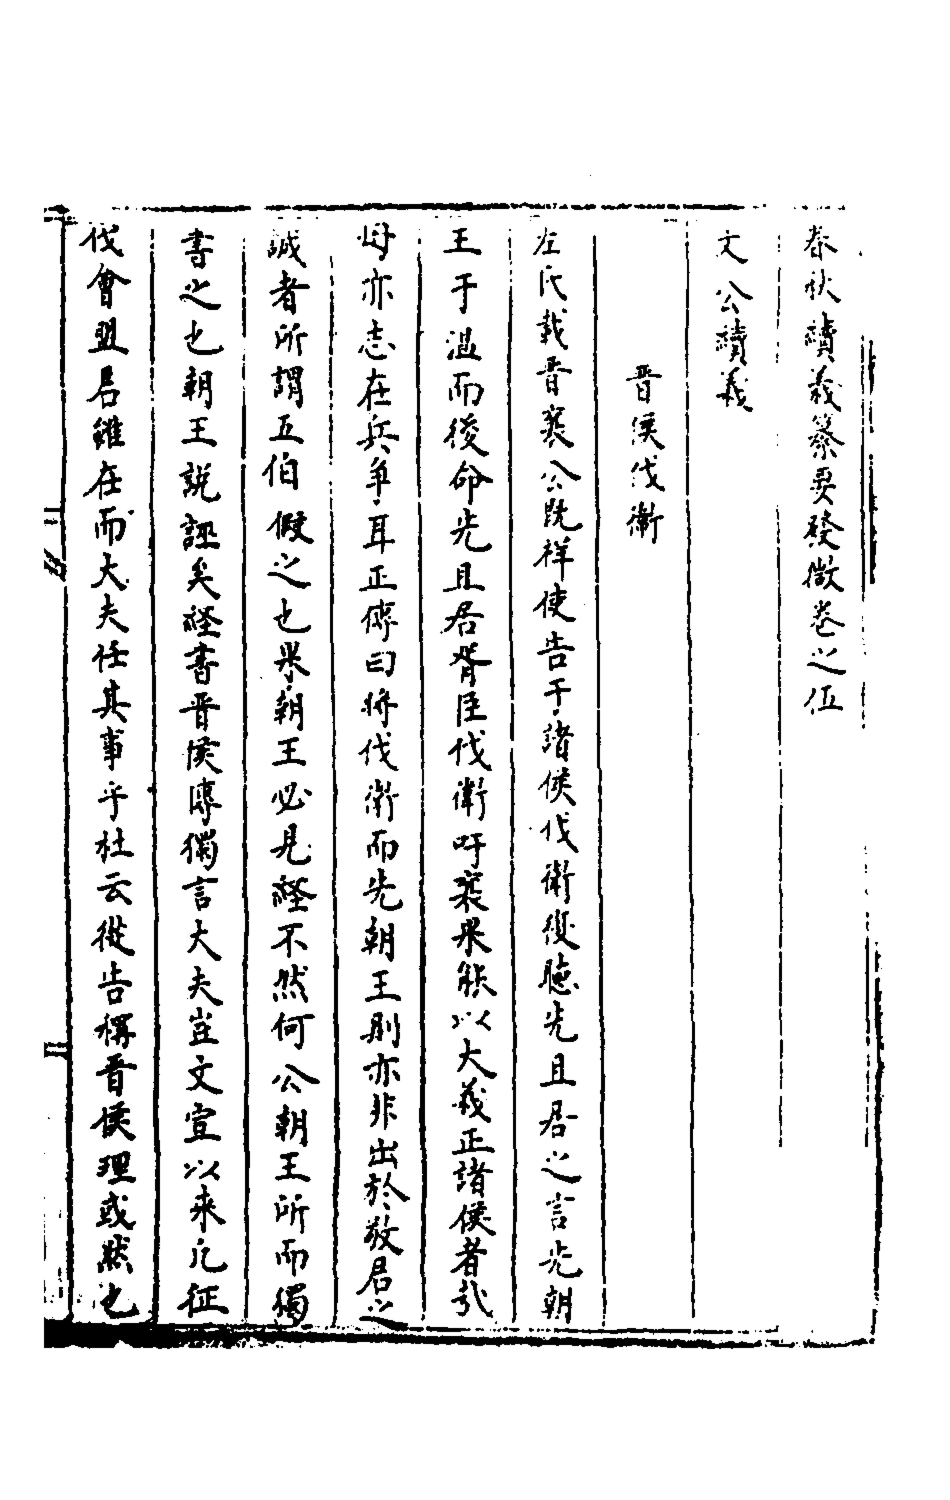 春秋續義纂要發微卷之伍
文公續義
晋侯伐衛
左氏載晋襄公既祥使告于諸侯伐衛復聽先且居之言先朝
王于温而後命先且居胥臣伐衛吁襄果能以大義正諸侯者哉
毋亦志在兵争耳正傳曰将伐衛而先朝王則亦非出於敬君之
誠者所謂五伯假之也果朝王必見経不然何公朝王所而獨
書之也朝王説誣矣経書晋侯傳獨言大夫豈文宣以来凡征
伐會盟君雖在而大夫任其事乎杜云從告稱晋侯理或然也